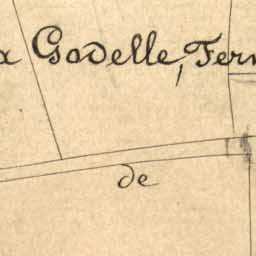 Godelle, Fer
de